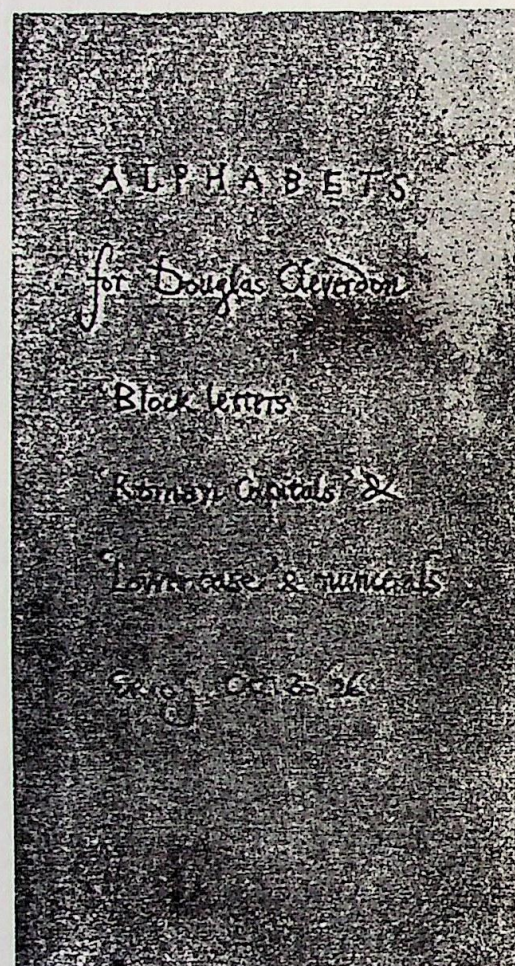 ALPHABETS
for Douglas Cleverdon
'Block letters'
'Roman Capitals' &
'Lower-case' & numerals